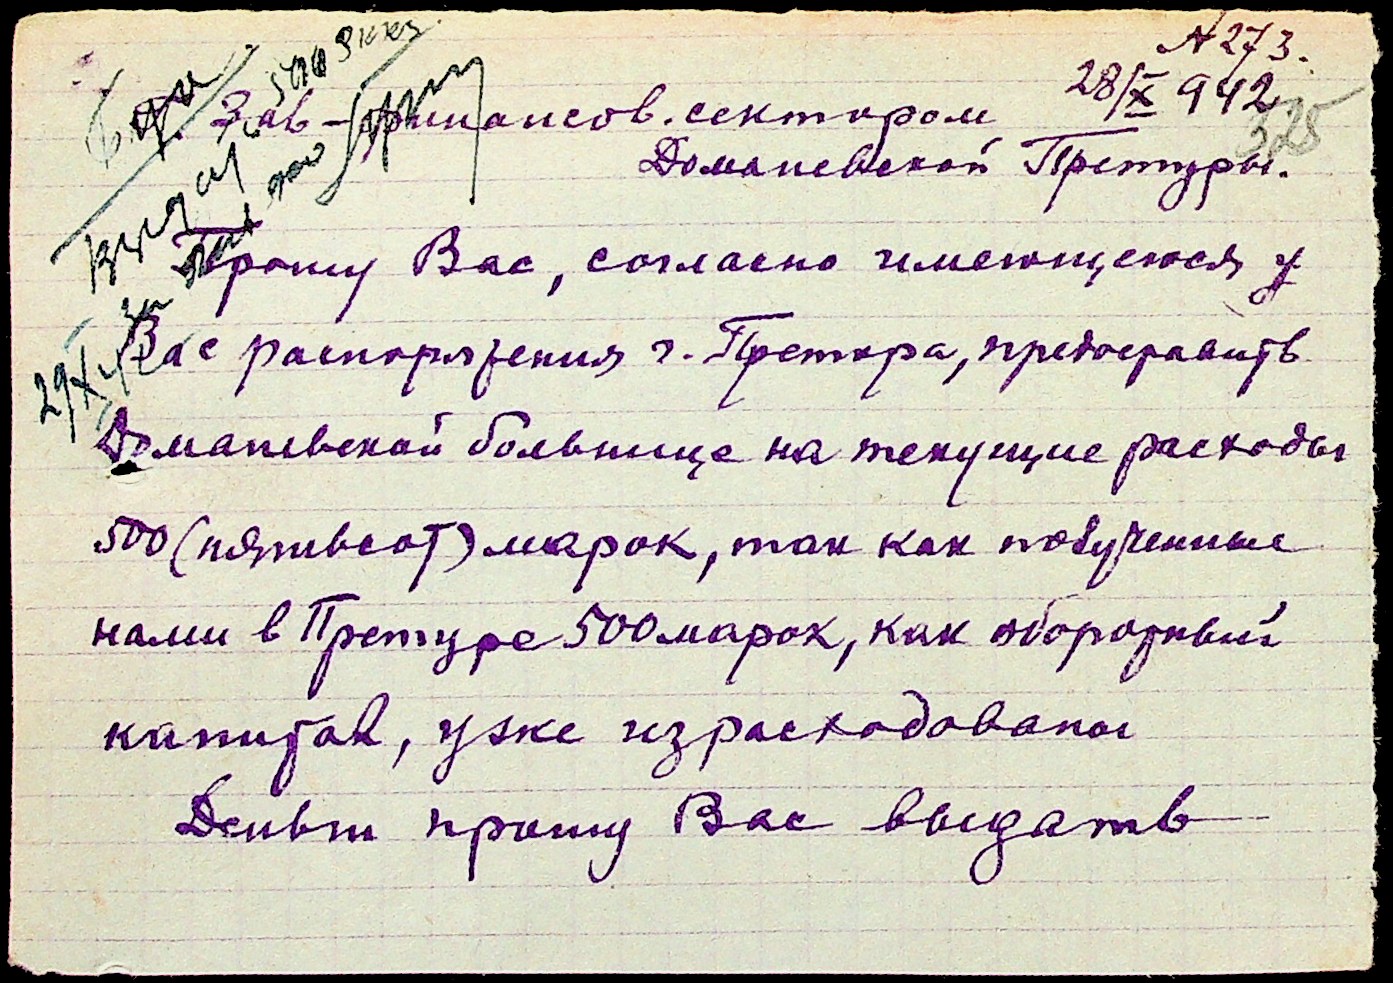 № 273.
28/X 942
325
Зав-финансов. сектором
Доманевской Претуры.
Прошу Вас, согласно имеющегося у
Вас распоряжения г. Претора, предоставить
Доманевской больнице на текущие расходы
500 (пятьсот) марок, так как полученные
нами в Претуре 500 марок, как оборотный
капитал, уже израсходованы
Деньги прошу Вас выдать